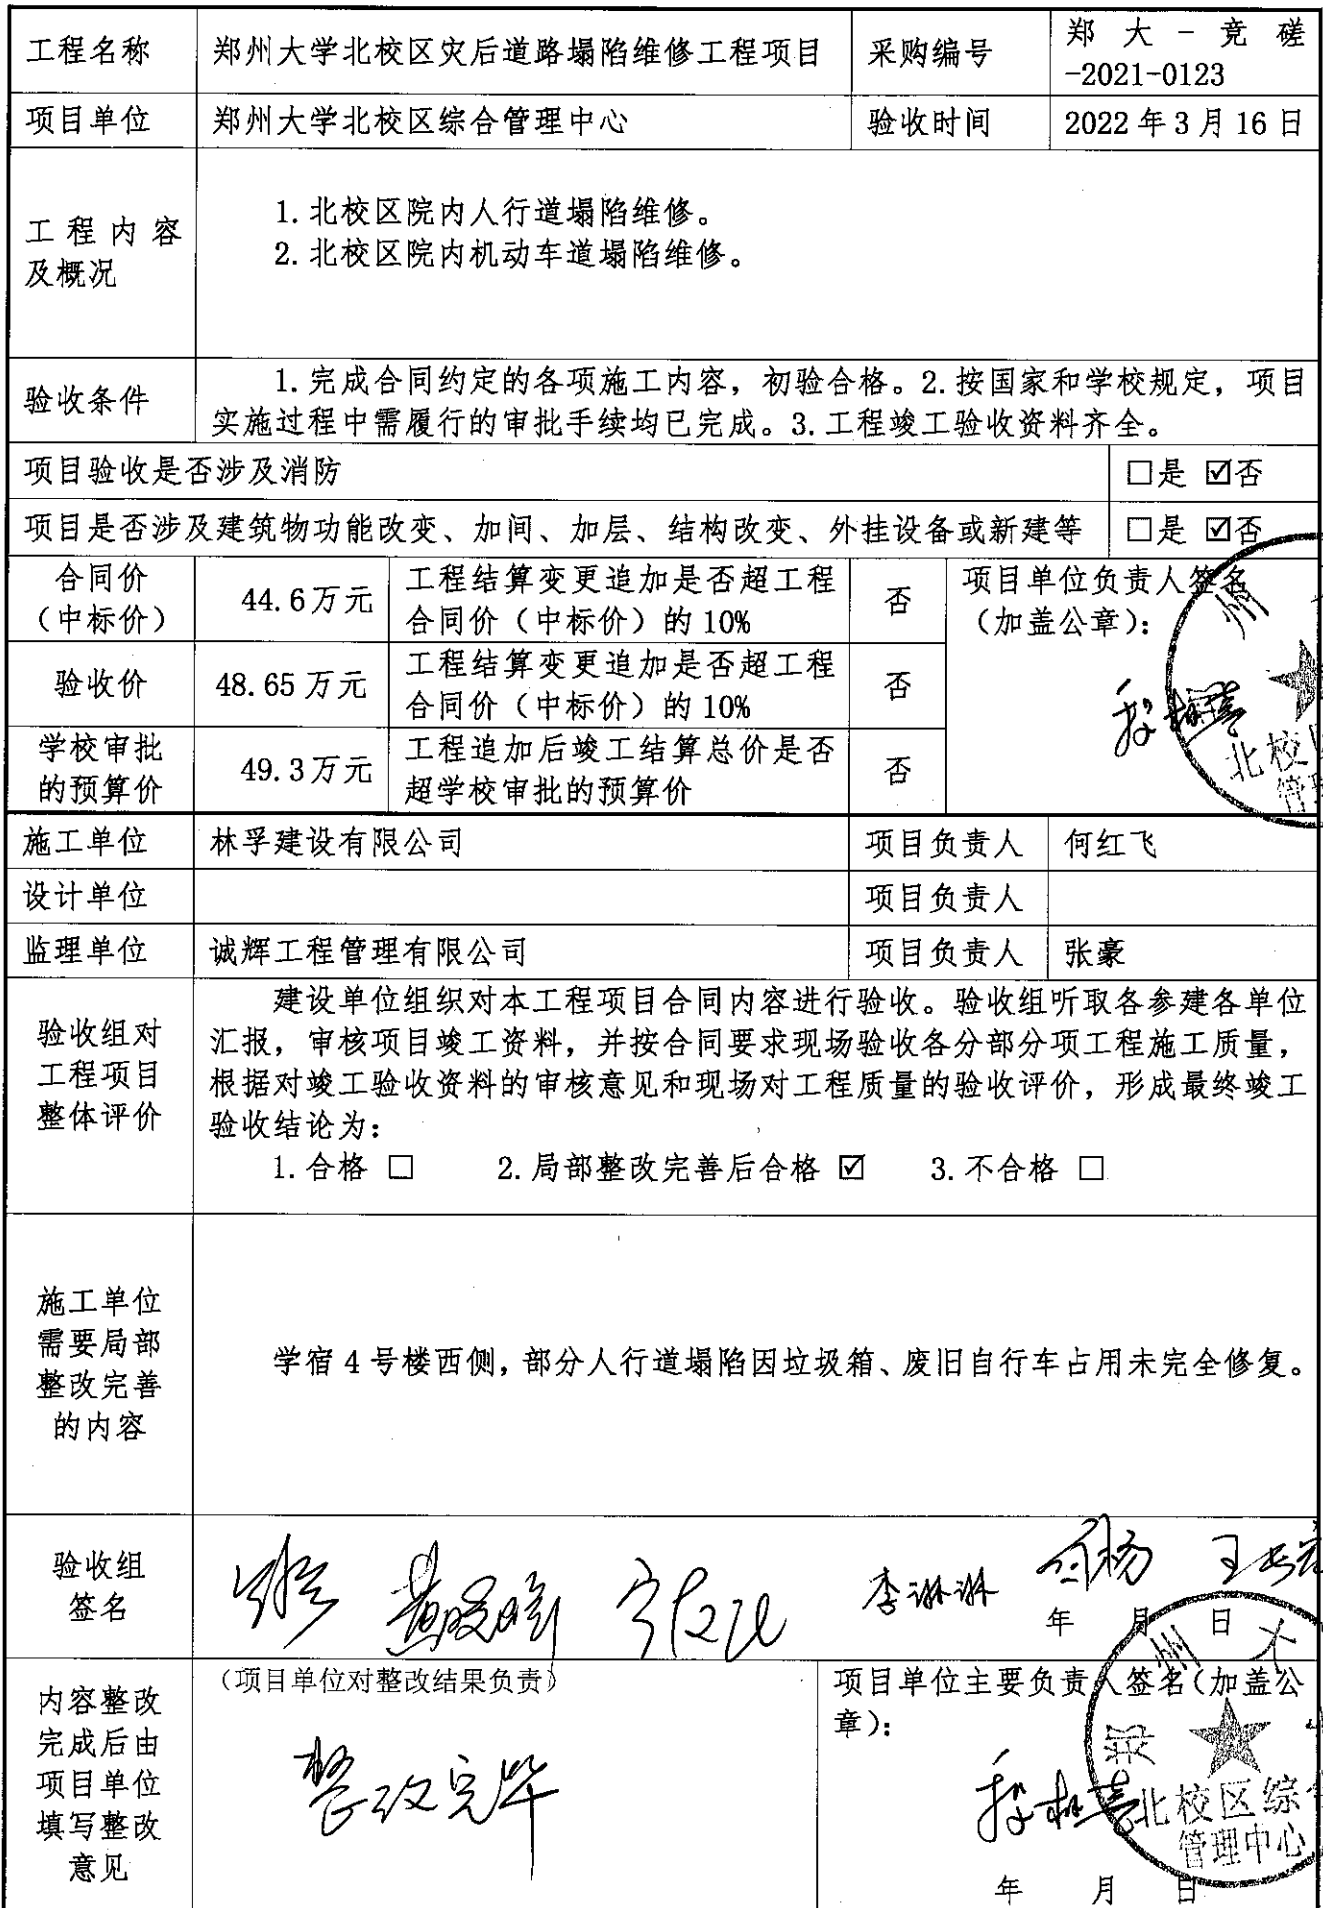 工程名称 郑州大学北校区灾后道路塌陷维修工程项目 采购编号 郑大-竞磋
-2021-0123
项目单位 郑州大学北校区综合管理中心 验收时间 2022年3月16日
工程内容
及概况
1.北校区院内人行道塌陷维修。
2.北校区院内机动车道塌陷维修。
验收条件
1.完成合同约定的各项施工内容，初验合格。2.按国家和学校规定，项目
实施过程中需履行的审批手续均已完成。3.工程竣工验收资料齐全。
项目验收是否涉及消防 □是 ☑否
项目是否涉及建筑物功能改变、加间、加层、结构改变、外挂设备或新建等 □是 ☑否
合同价
（中标价）
44.6万元
工程结算变更追加是否超工程
合同价（中标价）的10%
否
项目单位负责人签名
（加盖公章）：
验收价
48.65万元
工程结算变更追加是否超工程
合同价（中标价）的10%
否
学校审批
的预算价
49.3万元
工程追加后竣工结算总价是否
超学校审批的预算价
否
州
北校
管理
施工单位 林孚建设有限公司 项目负责人 何红飞
设计单位 项目负责人
监理单位 诚辉工程管理有限公司 项目负责人 张豪
验收组对
工程项目
整体评价
建设单位组织对本工程项目合同内容进行验收。验收组听取各参建各单位
汇报，审核项目竣工资料，并按合同要求现场验收各分部分项工程施工质量，
根据对竣工验收资料的审核意见和现场对工程质量的验收评价，形成最终竣工
验收结论为：
1.合格 □ 2.局部整改完善后合格 ☑ 3.不合格 □
施工单位
需要局部
整改完善
的内容
学宿4号楼西侧，部分人行道塌陷因垃圾箱、废旧自行车占用未完全修复。
验收组
签名
李淋淋
年 月 日
内容整改
完成后由
项目单位
填写整改
意见
（项目单位对整改结果负责）
整改完毕
项目单位主要负责人签名（加盖公
章）：
州大
北校区综
管理中心
年 月 日